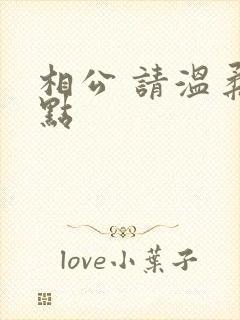 相公 請溫柔
點
love小葉子